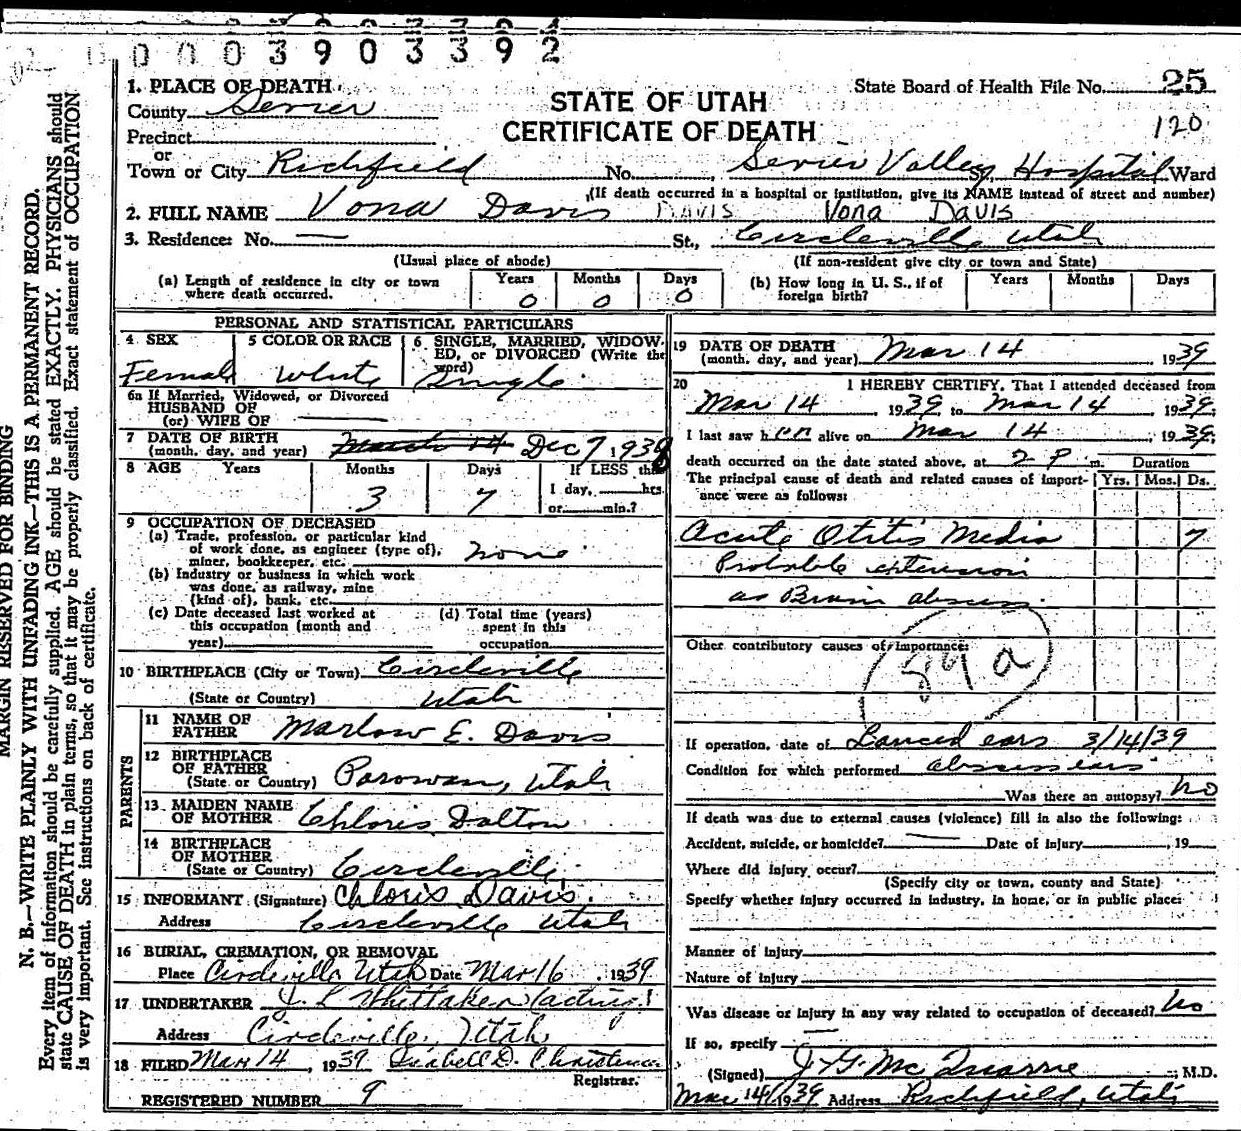 0003903392
1. PLACE OF DEATH
State Board of Health File No. 25
County Sevier
STATE OF UTAH
120
Precinct
CERTIFICATE OF DEATH
or
Town or City Richfield No. , Sevier Valley St., Hospital Ward
(If death occurred in a hospital or institution, give its NAME instead of street and number)
2. FULL NAME Vona Davis DAVIS Vona Davis
3. Residence: No. — St., Circleville Utah
(Usual place of abode) (If non-resident give city or town and State)
(a) Length of residence in city or town where death occurred. Years 0 Months 0 Days 0
(b) How long in U. S., if of foreign birth? Years Months Days
PERSONAL AND STATISTICAL PARTICULARS
4 SEX Female
5 COLOR OR RACE White
6 SINGLE, MARRIED, WIDOWED, or DIVORCED (Write the word) Single
6a If Married, Widowed, or Divorced
HUSBAND OF
(or) WIFE OF
7 DATE OF BIRTH
(month, day, and year) March 14 Dec 7, 1938
8 AGE Years Months 3 Days 7 If LESS than
1 day, hrs.
or min.?
9 OCCUPATION OF DECEASED
(a) Trade, profession, or particular kind
of work done, as engineer (type of),
miner, bookkeeper, etc. none
(b) Industry or business in which work
was done, as railway, mine
(kind of), bank, etc.
(c) Date deceased last worked at
this occupation (month and
year)
(d) Total time (years)
spent in this
occupation
10 BIRTHPLACE (City or Town) Circleville
(State or Country) Utah
PARENTS
11 NAME OF
FATHER Marlow E. Davis
12 BIRTHPLACE
OF FATHER
(State or Country) Parowan, Utah
13 MAIDEN NAME
OF MOTHER Chloris Dalton
14 BIRTHPLACE
OF MOTHER
(State or Country) Circleville
15 INFORMANT (Signature) Chloris Davis
Address Circleville Utah
16 BURIAL, CREMATION, OR REMOVAL
Place Circleville Utah Date Mar 16, 1939
17 UNDERTAKER J. L. Whittaker (acting)
Address Circleville, Utah
18 FILED Mar 14, 1939 D. Christensen
Registrar.
REGISTERED NUMBER 9
19 DATE OF DEATH
(month, day, and year) Mar 14 1939
20 I HEREBY CERTIFY, That I attended deceased from
Mar 14 1939, to Mar 14 1939,
I last saw her alive on Mar 14, 1939,
death occurred on the date stated above, at 2 P m. Duration
The principal cause of death and related causes of importance were as follows: Yrs. Mos. Ds.
Acute Otitis Media 7
Probable extension
as Brain abscess.
Other contributory causes of importance:
89a
If operation, date of Lanced ears 3/14/39
Condition for which performed abscess ears
Was there an autopsy? No
If death was due to external causes (violence) fill in also the following:
Accident, suicide, or homicide? Date of injury , 19
Where did injury occur?
(Specify city or town, county and State)
Specify whether injury occurred in industry, in home, or in public place:
Manner of injury
Nature of injury
Was disease or injury in any way related to occupation of deceased? No
If so, specify —
(Signed) J G Mc Quarrie, M.D.
Mar 14, 1939 Address Richfield, Utah
MARGIN RESERVED FOR BINDING
N. B.—WRITE PLAINLY WITH UNFADING INK—THIS IS A PERMANENT RECORD.
Every item of information should be carefully supplied. AGE should be stated EXACTLY. PHYSICIANS should
state CAUSE OF DEATH in plain terms, so that it may be properly classified. Exact statement of OCCUPATION
is very important. See instructions on back of certificate.